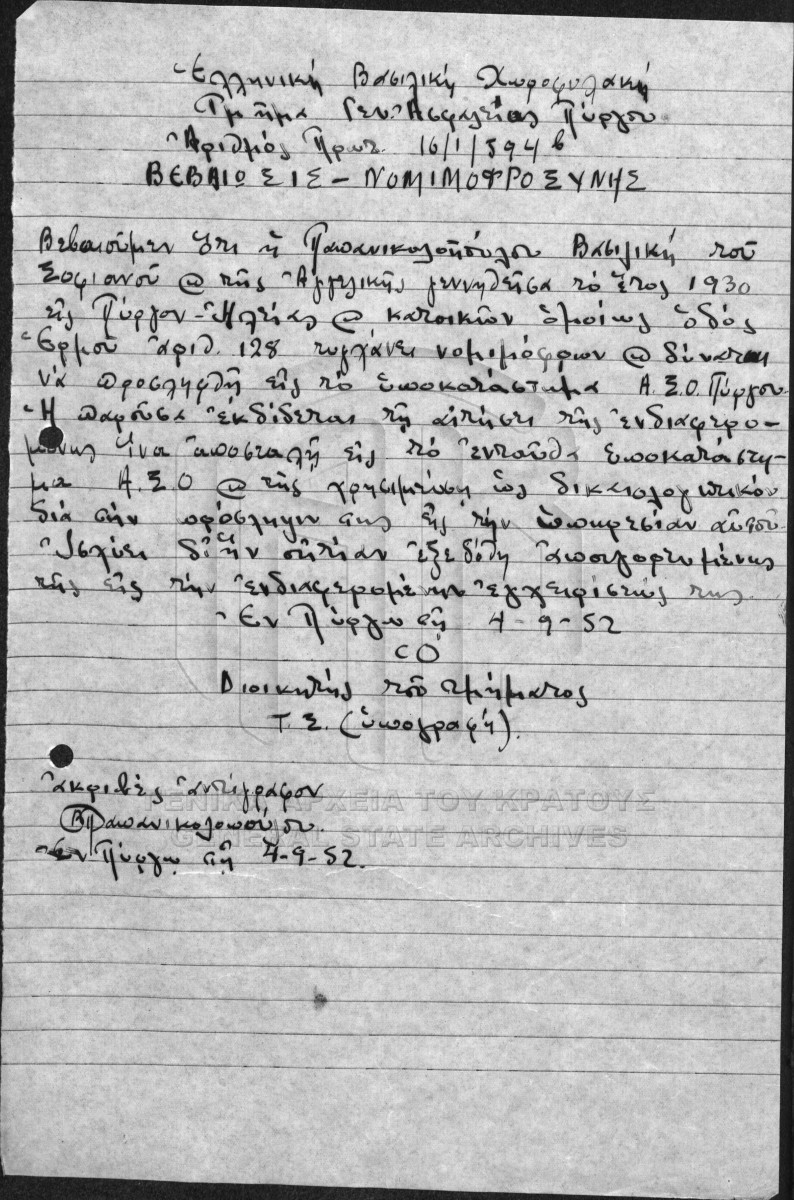 Ἑλληνική Βασιλική Χωροφυλακή
Τμῆμα Γεν. Ἀσφαλείας Πύργου
Ἀριθμός Πρωτ. 16/1/594 β
ΒΕΒΑΙΩΣΙΣ - ΝΟΜΙΜΟΦΡΟΣΥΝΗΣ
Βεβαιοῦμεν ὅτι ἡ Παπανικολοπούλου Βασιλική τοῦ
Σοφιανοῦ @ τῆς Ἀγγελικῆς γεννηθεῖσα τό ἔτος 1930
εἰς Πύργον-Ἠλείας @ κατοικῶν ὁμοίως ὁδός
Ἑρμοῦ ἀριθ. 128 τυγχάνει νομιμόφρων @ δύναται
νά προσληφθῇ εἰς τό ὑποκατάστημα Α.Σ.Ο. Πύργου.
Ἡ παροῦσα ἐκδίδεται τῇ αἰτήσει τῆς ἐνδιαφερο-
μένης ἵνα ἀποσταλῇ εἰς τό ἐνταῦθα ὑποκατάστη-
μα Α.Σ.Ο @ τῆς χρησιμεύσῃ ὡς δικαιολογητικόν
διά τήν πρόσληψιν της εἰς τήν ὑπηρεσίαν αὐτοῦ.
Ἰσχύει δι' ἥν αἰτίαν ἐξεδόθη ἀπαγορευμένης
τῆς εἰς τήν ἐνδιαφερομένην ἐγχειρίσεώς της.
Ἐν Πύργῳ τῇ 4-9-52
Ὁ
Διοικητής τοῦ τμήματος
Τ.Σ. (ὑπογραφή).
Ἀκριβές ἀντίγραφον
ΒΠαπανικολοπούλου
Ἐν Πύργῳ τῇ 4-9-52.
ΓΕΝΙΚΑ ΑΡΧΕΙΑ ΤΟΥ ΚΡΑΤΟΥΣ
GENERAL STATE ARCHIVES